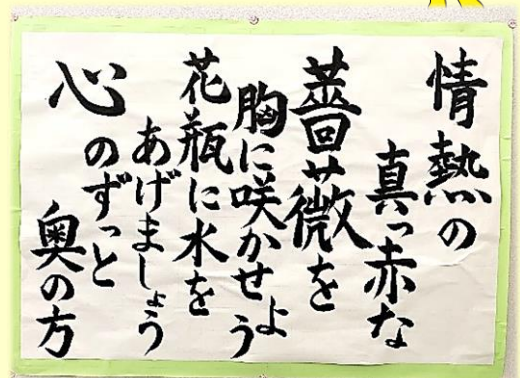 情熱の
真っ赤な
薔薇を
胸に咲かせよう
花瓶に水を
あげましょう
心のずっと
奥の方